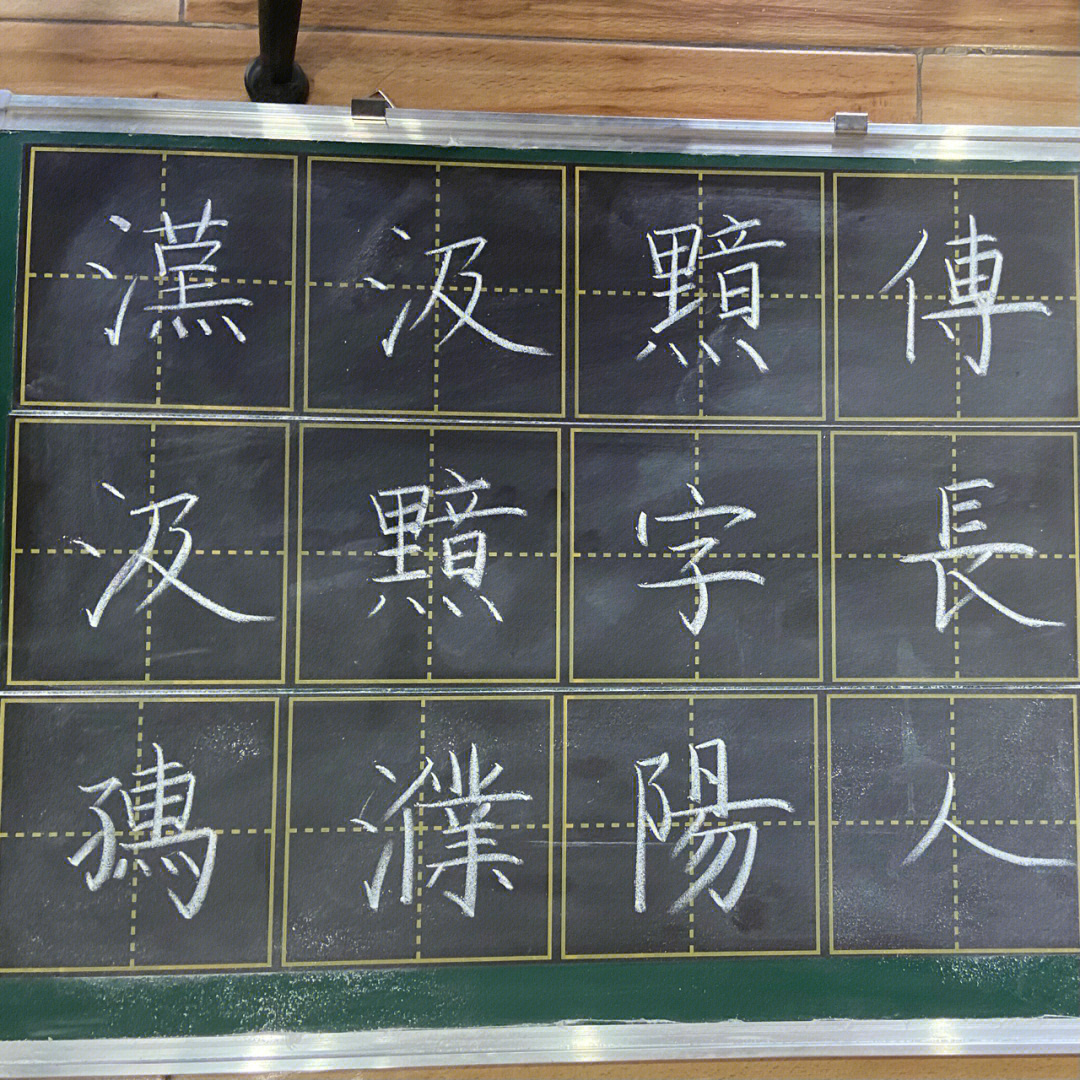 漢汲黯傳
汲黯字長
孺濮陽人